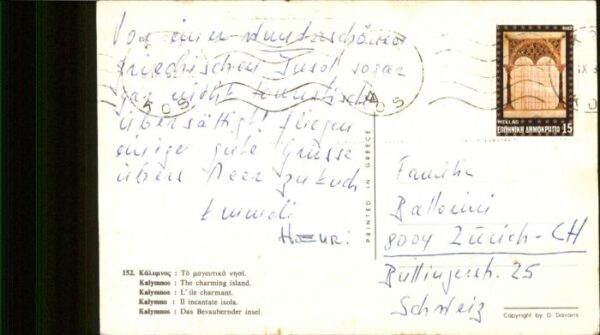 Von einer wunderschönen
friedlichen Insel sogar
gar nicht touristisch
übersättigt fliegen
einige gute Grüsse
übers Meer zu Euch
Emmeli
Henri
152. Κάλυμνος : Τὸ μαγευτικὸ νησί.
Kalymnos : The charming island.
Kalymnos : L'île charmant.
Kalymno : Il incantate isola.
Kalymnos : Das Bevaubernder insel.
PRINTED IN GREECE
ΚΩΣ
KOS
HELLAS
ΕΛΛΗΝΙΚΗ ΔΗΜΟΚΡΑΤΙΑ 15
Familie
Ballerini
8004 Zürich-CH
Bullingerstr. 25
Schweiz
Copyright by D. Davaris